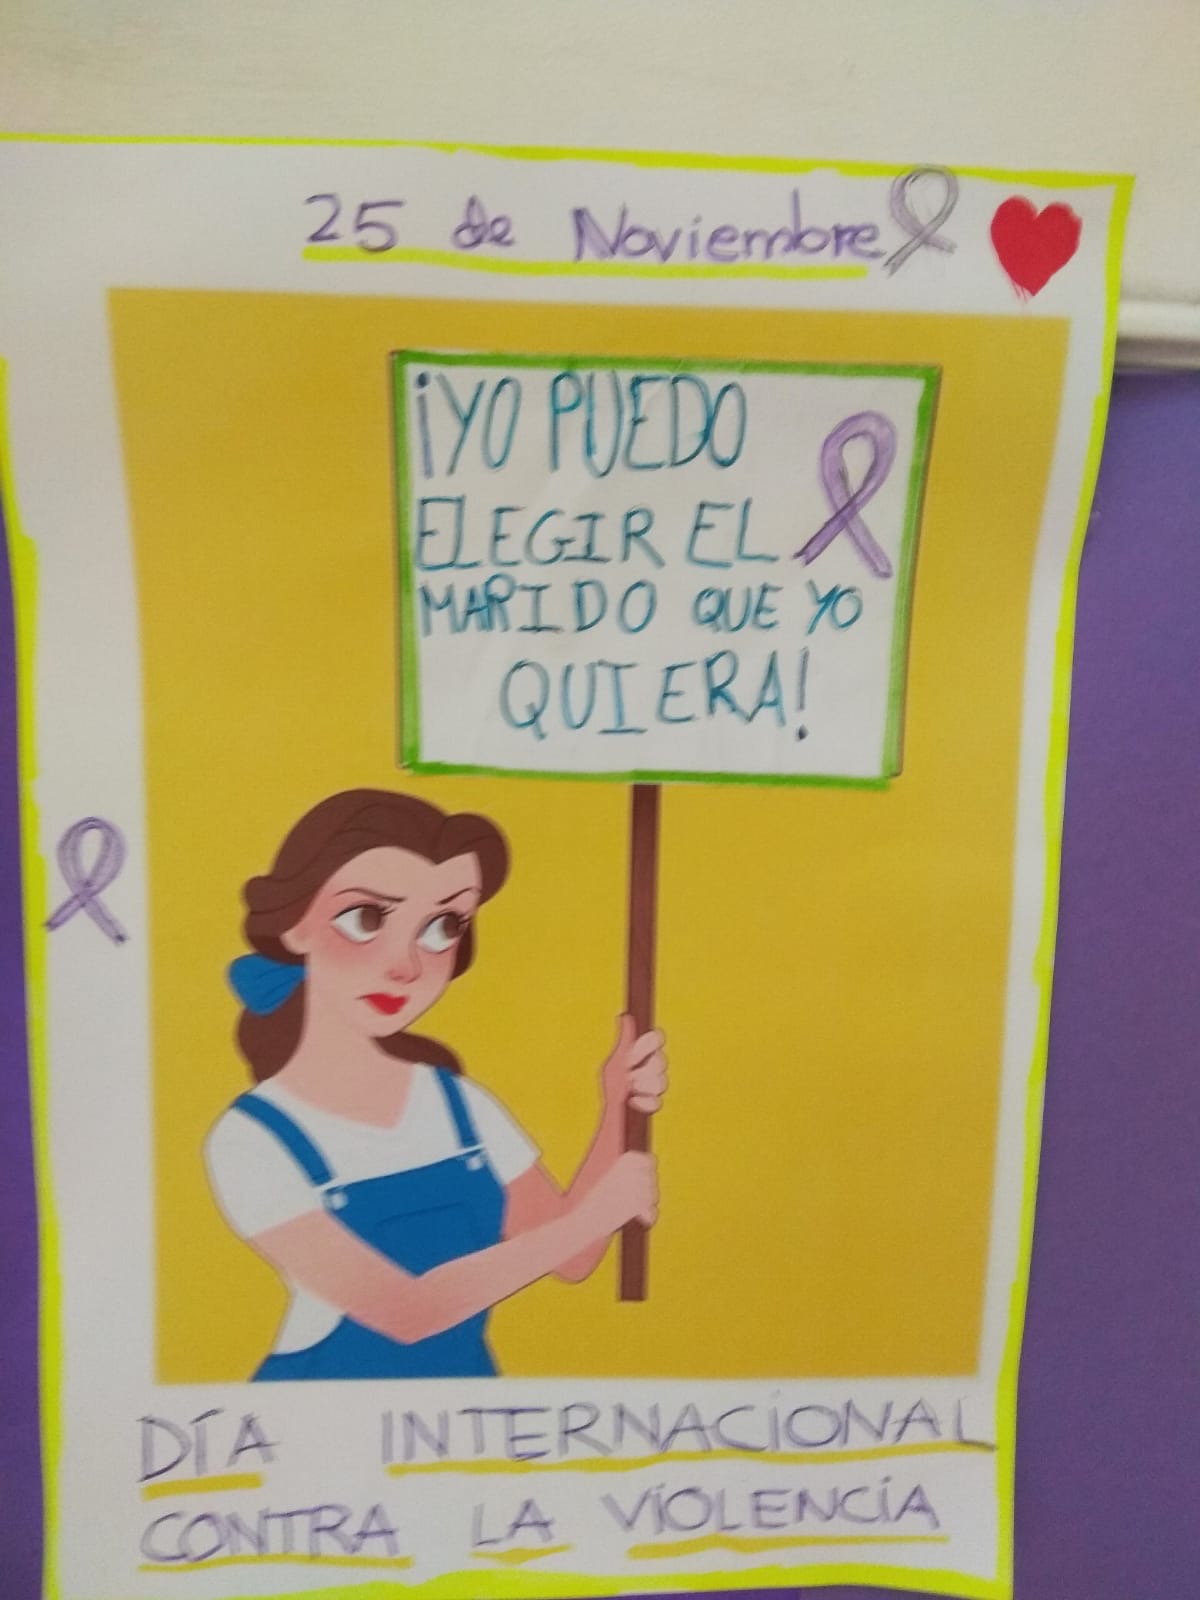 25 de Noviembre
¡YO PUEDO
ELEGIR EL
MARIDO QUE YO
QUIERA!
DÍA INTERNACIONAL
CONTRA LA VIOLENCIA